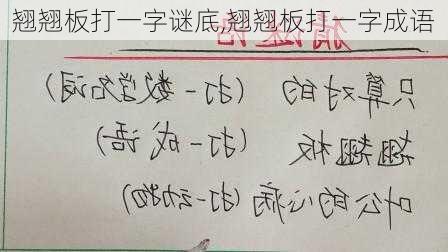 翘翘板打一字谜底,翘翘板打一字成语
猜谜语
只算对的 (打一数学名词)
翘翘板 (打一成语)
叶公的心病 (打一动物)